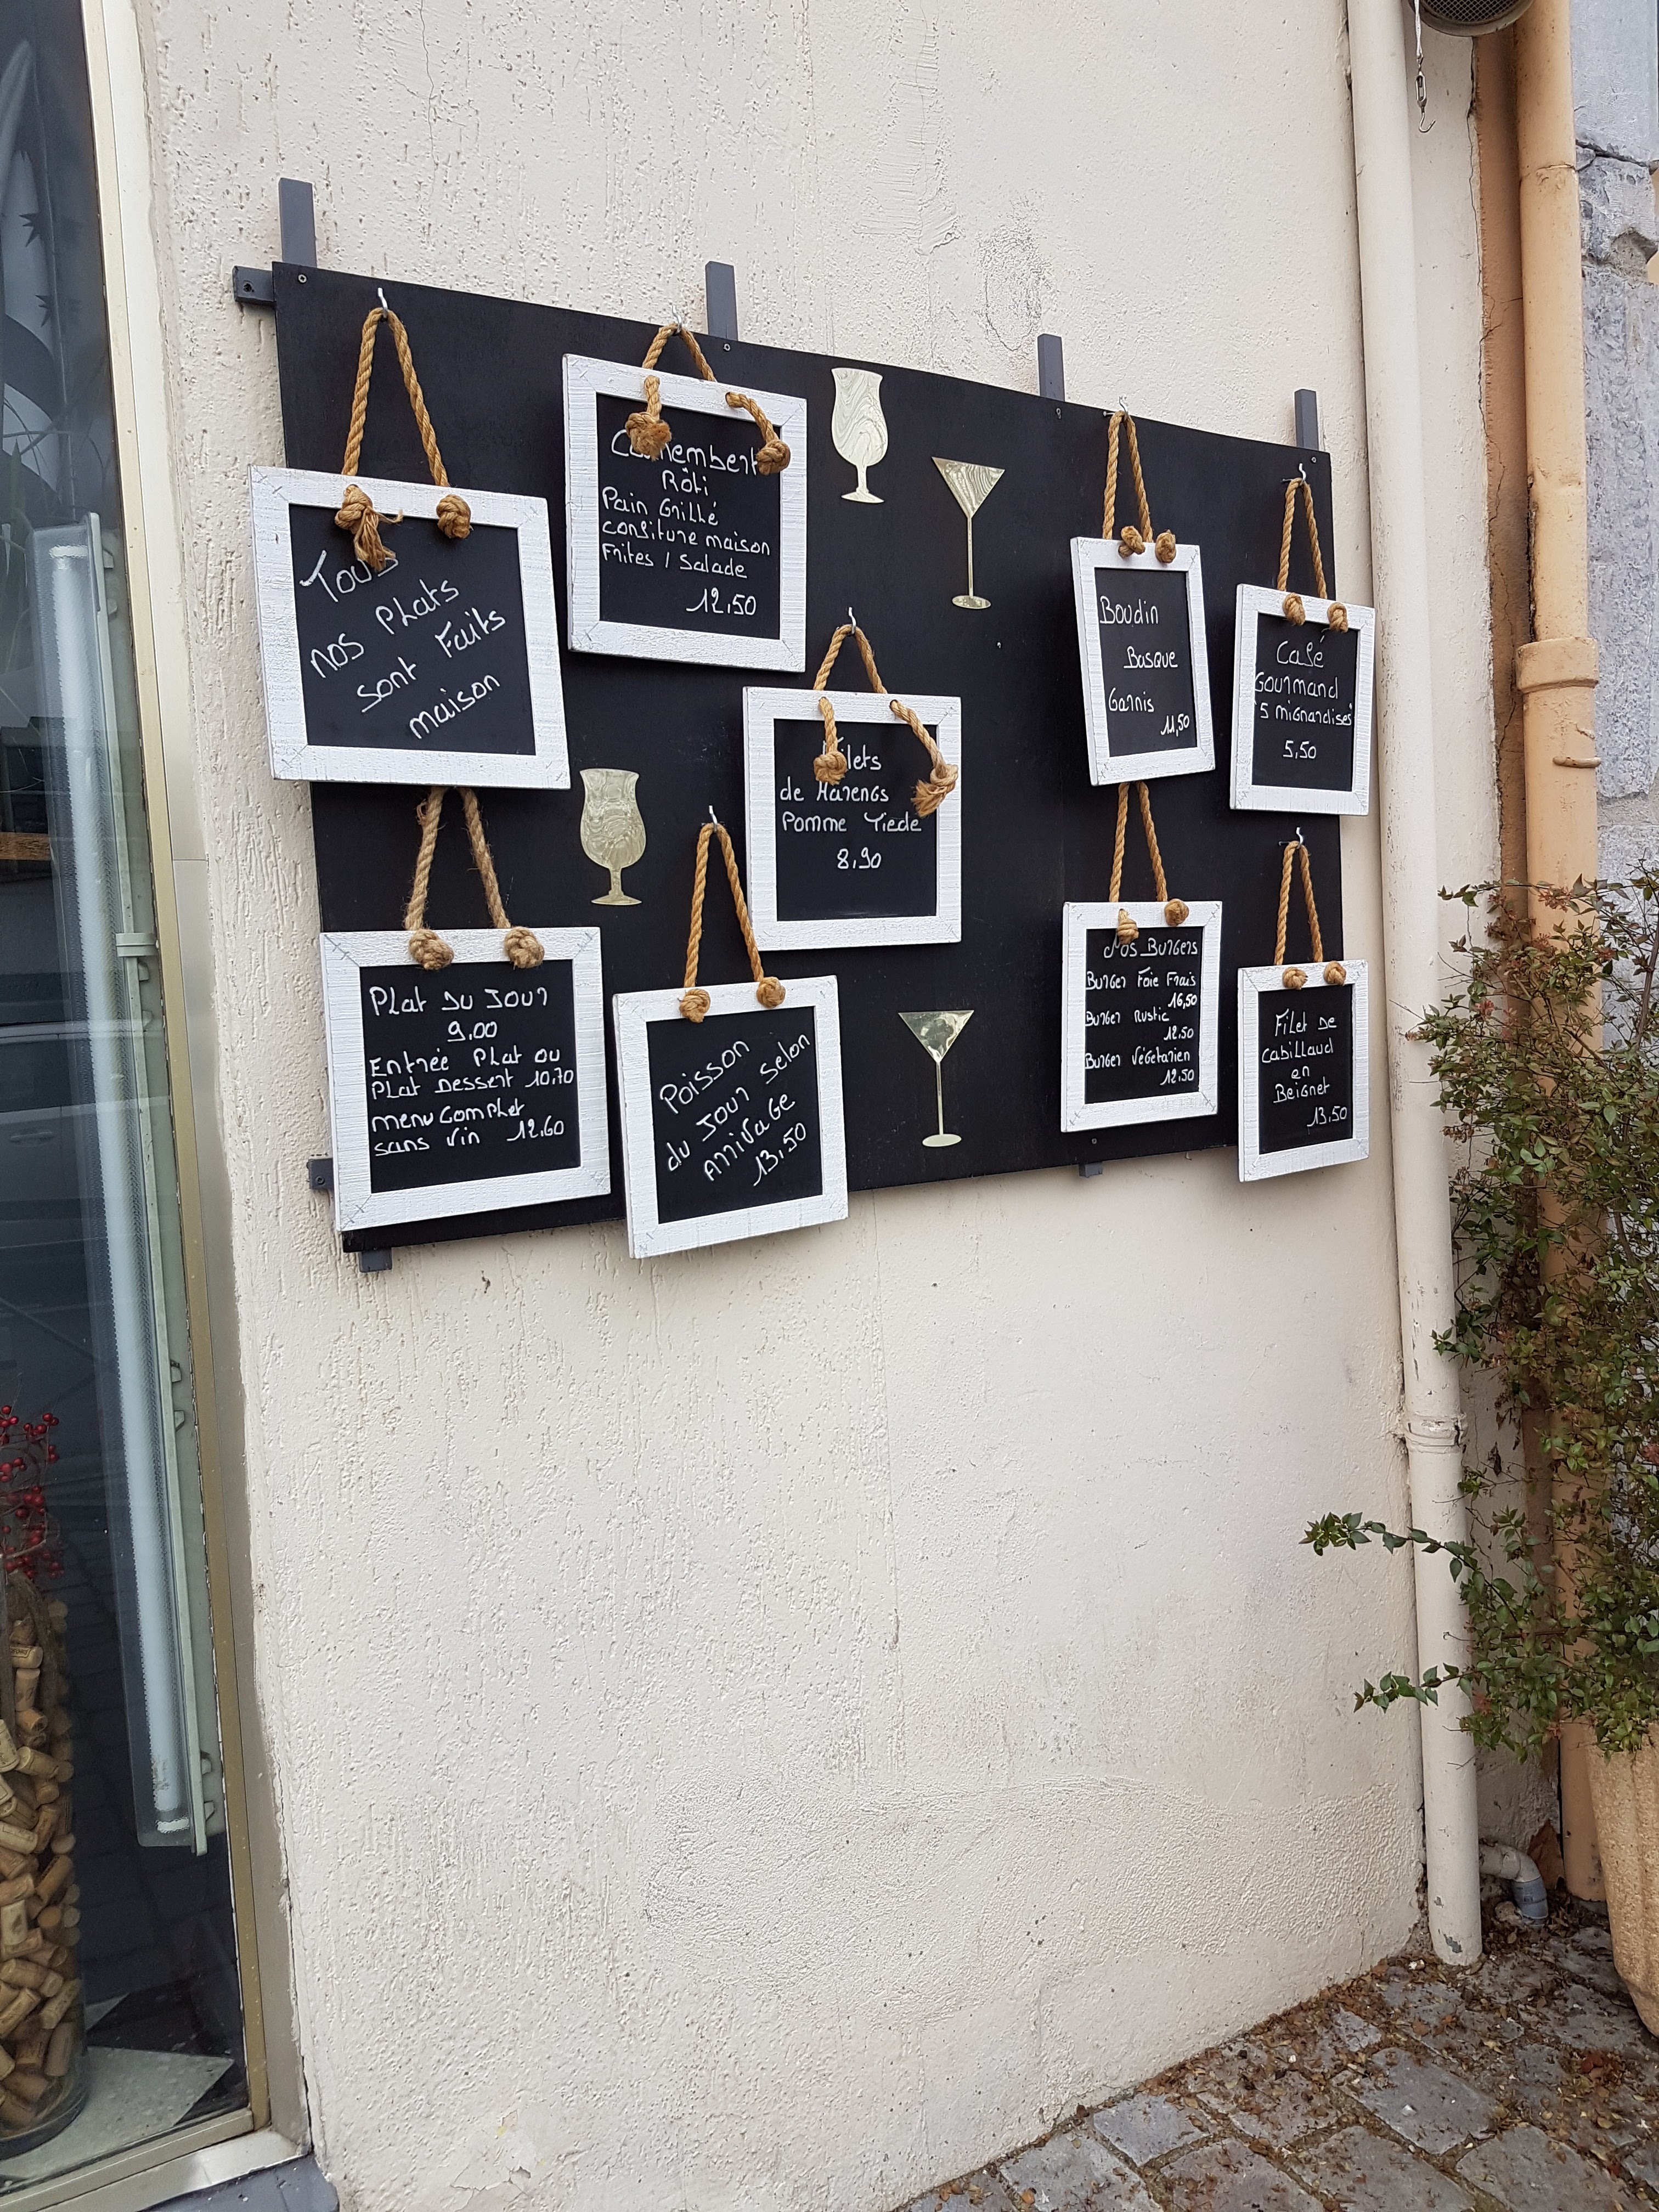 Tous
nos Plats
sont Faits
maison
Camembert
Rôti
Pain Grillé
confiture maison
Frites / Salade
12,50
Filets
de Harengs
Pomme Tiede
8,90
Boudin
Basque
Garnis
11,50
Café
Gourmand
5 mignardises
5,50
Plat du Jour
9,00
Entrée Plat ou
Plat Dessert 10,70
menu Complet
sans vin 12,60
Poisson
du Jour selon
Arrivage
13,50
Nos Burgers
Burger Foie Frais
16,50
Burger Rustic
12.50
Burger Végétarien
12.50
Filet de
Cabillaud
en
Beignet
13,50